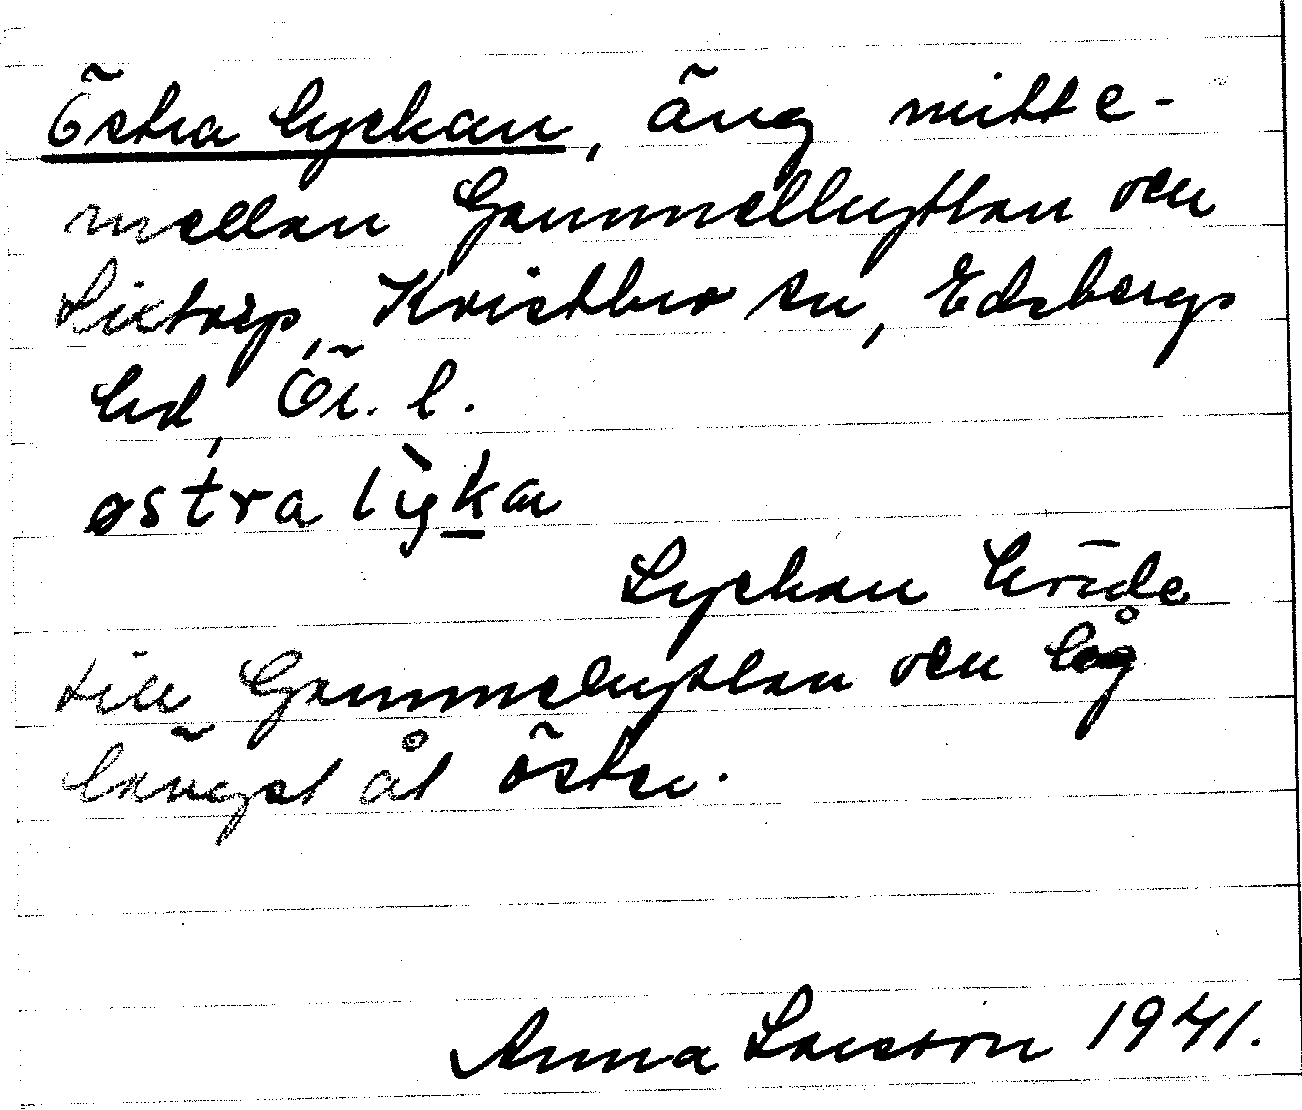 Östra lyckan, äng mitte-
mellan Gammelhyttan och
Sistorp, Kvistbro sn, Edsbergs
hd, Ör. l.
østra lỳkan
Lyckan hörde
till Gammelhyttan och låg
längst åt öster.
Anna Larsson 1941.